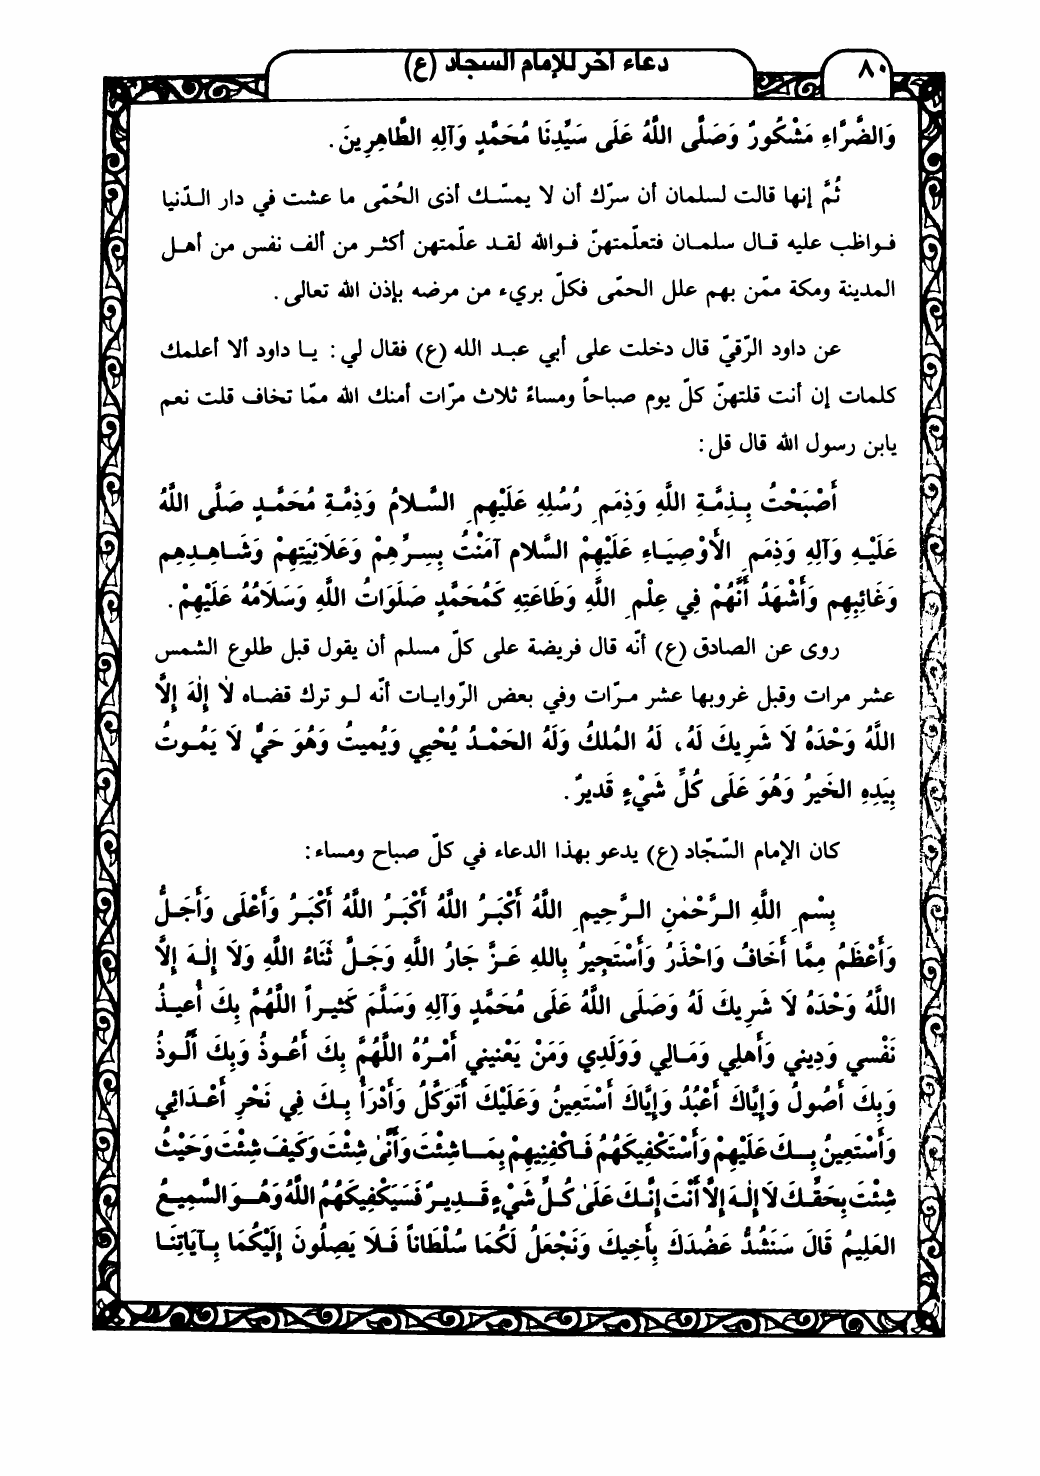 ٨٠
دعاء آخر للإمام السجاد (ع)
وَالضَّرَّاءِ مَشْكُورٌ وَصَلَّى اللَّهُ عَلَى سَيِّدِنَا مُحَمَّدٍ وَآلِهِ الطَّاهِرِينَ.
ثُمَّ إنها قالت لسلمان أن سرّك أن لا يمسّك أذى الحُمّى ما عشت في دار الدّنيا
فواظب عليه قال سلمان فتعلّمتهنّ فوالله لقد علّمتهن أكثر من ألف نفس من أهل
المدينة ومكة ممّن بهم علل الحمّى فكلّ بريء من مرضه بإذن الله تعالى.
عن داود الرّقيّ قال دخلت على أبي عبد الله (ع) فقال لي: يا داود ألا أعلمك
كلمات إن أنت قلتهنّ كلّ يوم صباحاً ومساءً ثلاث مرّات أمنك الله ممّا تخاف قلت نعم
يابن رسول الله قال قل:
أَصْبَحْتُ بِذِمَّةِ اللَّهِ وَذِمَمِ رُسُلِهِ عَلَيْهِمِ السَّلامُ وَذِمَّةِ مُحَمَّدٍ صَلَّى اللَّهُ
عَلَيْهِ وَآلِهِ وَذِمَمِ الأَوْصِيَاءِ عَلَيْهِمْ السَّلام آمَنْتُ بِسِرِّهِمْ وَعَلَانِيَتِهِمْ وَشَاهِدِهِم
وَغَائِبِهِم وَأَشْهَدُ أَنَّهُمْ فِي عِلْمِ اللَّهِ وَطَاعَتِهِ كَمُحَمَّدٍ صَلَوَاتُ اللَّهِ وَسَلَامُهُ عَلَيْهِمْ.
روى عن الصادق (ع) أنّه قال فريضة على كلّ مسلم أن يقول قبل طلوع الشمس
عشر مرات وقبل غروبها عشر مرّات وفي بعض الرّوايات أنّه لو ترك قضاه لَا إِلٰهَ إِلَّا
اللَّهُ وَحْدَهُ لَا شَرِيكَ لَهُ، لَهُ المُلكُ وَلَهُ الحَمْدُ يُحْيِي وَيُمِيتُ وَهُوَ حَيٌّ لَا يَمُوتُ
بِيَدِهِ الخَيرُ وَهُوَ عَلَى كُلِّ شَيْءٍ قَدِيرٌ.
كان الإمام السّجّاد (ع) يدعو بهذا الدعاء في كلّ صباح ومساء:
بِسْمِ اللَّهِ الرَّحْمٰنِ الرَّحِيمِ اللَّهُ أَكْبَرُ اللَّهُ أَكْبَرُ اللَّهُ أَكْبَرُ وَأَعْلَى وَأَجَلُّ
وَأَعْظَمُ مِمَّا أَخَافُ وَاحْذَرُ وَأَسْتَجِيرُ بِاللهِ عَزَّ جَارُ اللَّهِ وَجَلَّ ثَنَاءُ اللَّهِ وَلَا إِلٰهَ إِلَّا
اللَّهُ وَحْدَهُ لَا شَرِيكَ لَهُ وَصَلَى اللَّهُ عَلَى مُحَمَّدٍ وَآلِهِ وَسَلَّمَ كَثِيراً اللَّهُمَّ بِكَ أُعِيذُ
نَفْسي وَدِيني وَأَهلِي وَمَالِي وَوَلَدِي وَمَنْ يَعْنيني أَمْرُهُ اللَّهُمَّ بِكَ أَعُوذُ وَبِكَ أَلُوذُ
وَبِكَ أَصُولُ وَإِيَّاكَ أَعْبُدُ وَإِيَّاكَ أَسْتَعِينُ وَعَلَيْكَ أَتَوَكَّلُ وَأَدْرَأُ بِكَ فِي نَحْرِ أَعْدَائِي
وَأَسْتَعِينُ بِكَ عَلَيْهِمْ وَأَسْتَكْفِيكَهُمُ فَاكْفِنِيهِمْ بِمَا شِئْتَ وَأَنَّىٰ شِئْتَ وَكَيفَ شِئْتَ وَحَيْثُ
شِئْتَ بِحَقِّكَ لَا إِلٰهَ إِلَّا أَنْتَ إِنَّكَ عَلَىٰ كُلِّ شَيْءٍ قَدِيرٌ فَسَيَكْفِيكَهُمُ اللَّهُ وَهُوَ السَّمِيعُ
العَلِيمُ قَالَ سَنَشُدُّ عَضُدَكَ بِأَخِيكَ وَنَجْعَلُ لَكُمَا سُلْطَاناً فَلَا يَصِلُونَ إِلَيْكُمَا بِآيَاتِنَا